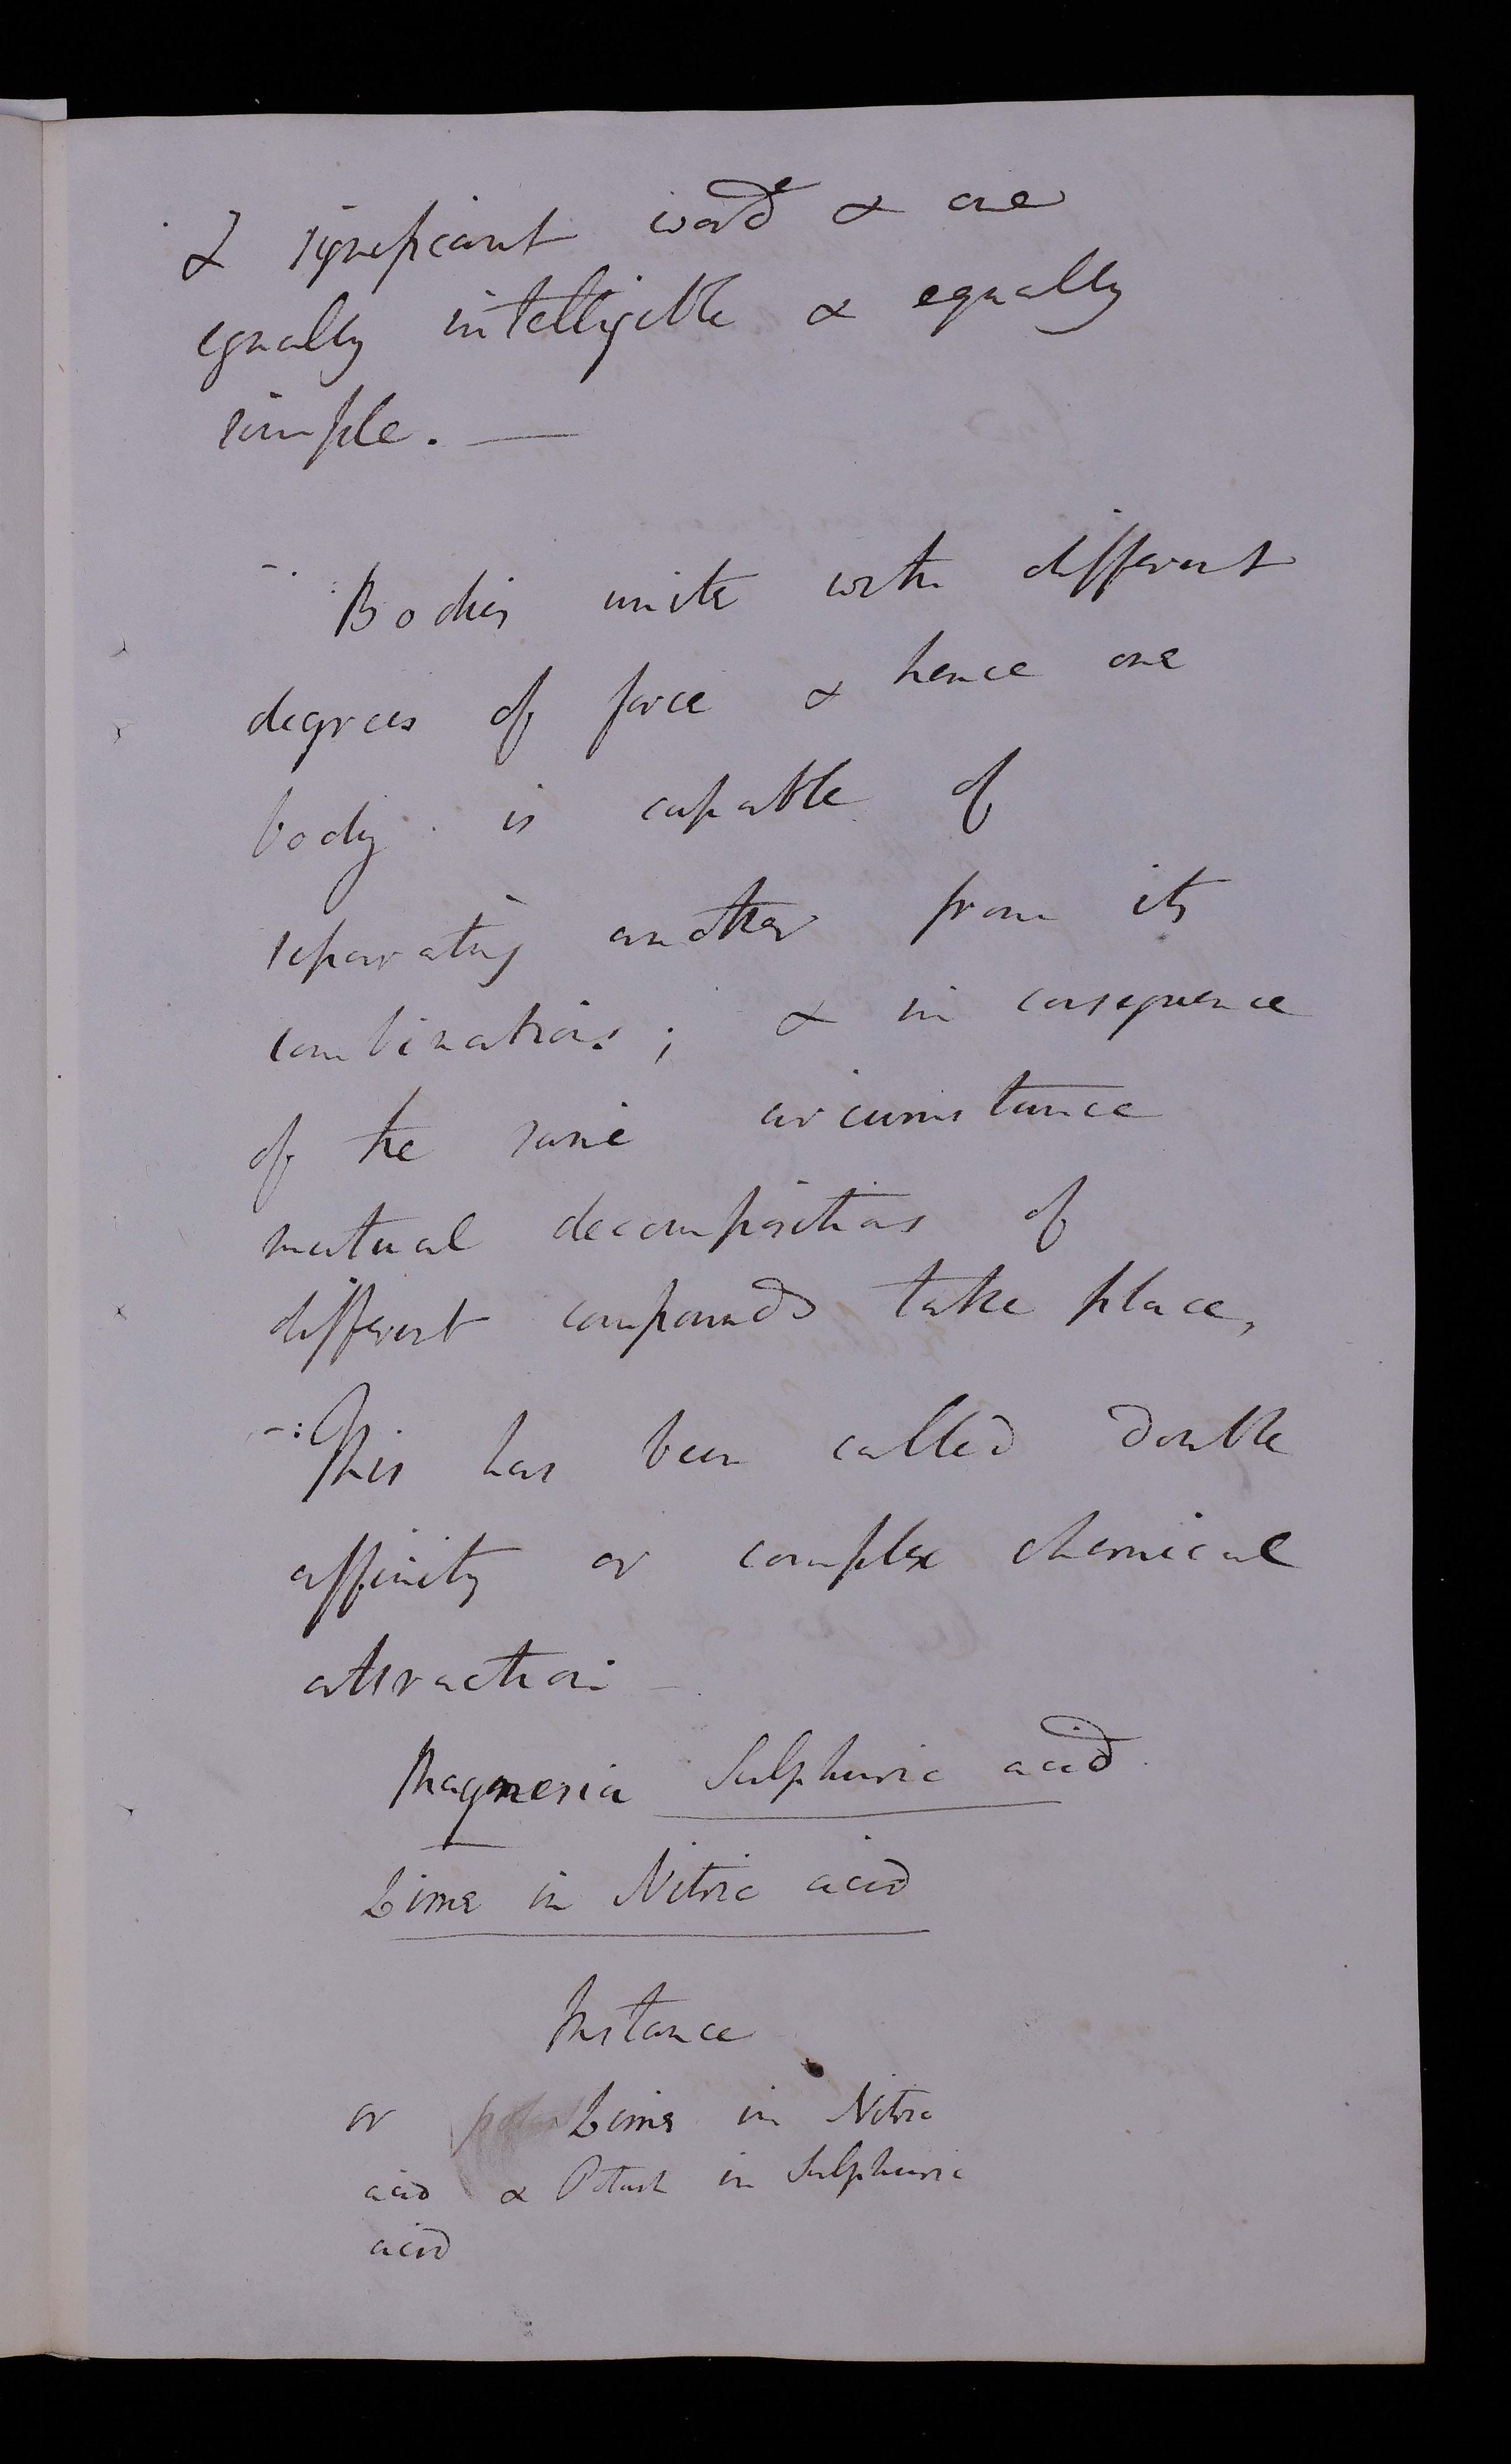 & significant word & one
equally intelligible & equally
simple. —
-. Bodies unite with different
degrees of force & hence one
body is capable of
separating another from its
combinations; & in consequence
of the same circumstance
mutual decompositions of
different compounds take place,
-: This has been called double
affinity or complex chemical
attraction -
Magnesia Sulphuric acid
Lime in Nitric acid
Instance
or Lime in Nitric
acid & Potash in Sulphuric
acid